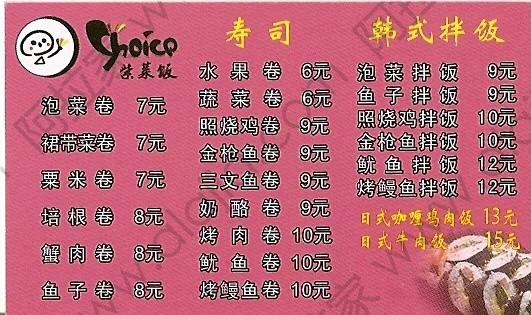 Choice
紫菜饭
泡菜卷 7元
裙带菜卷 7元
粟米卷 7元
培根卷 8元
蟹肉卷 8元
鱼子卷 8元
寿司
水果卷 6元
蔬菜卷 6元
照烧鸡卷 9元
金枪鱼卷 9元
三文鱼卷 9元
奶酪卷 9元
烤肉卷 10元
鱿鱼卷 10元
烤鳗鱼卷 10元
韩式拌饭
泡菜拌饭 9元
鱼子拌饭 9元
照烧鸡拌饭 10元
金枪鱼拌饭 10元
鱿鱼拌饭 12元
烤鳗鱼拌饭 12元
日式咖喱鸡肉饭 13元
日式牛肉饭 15元